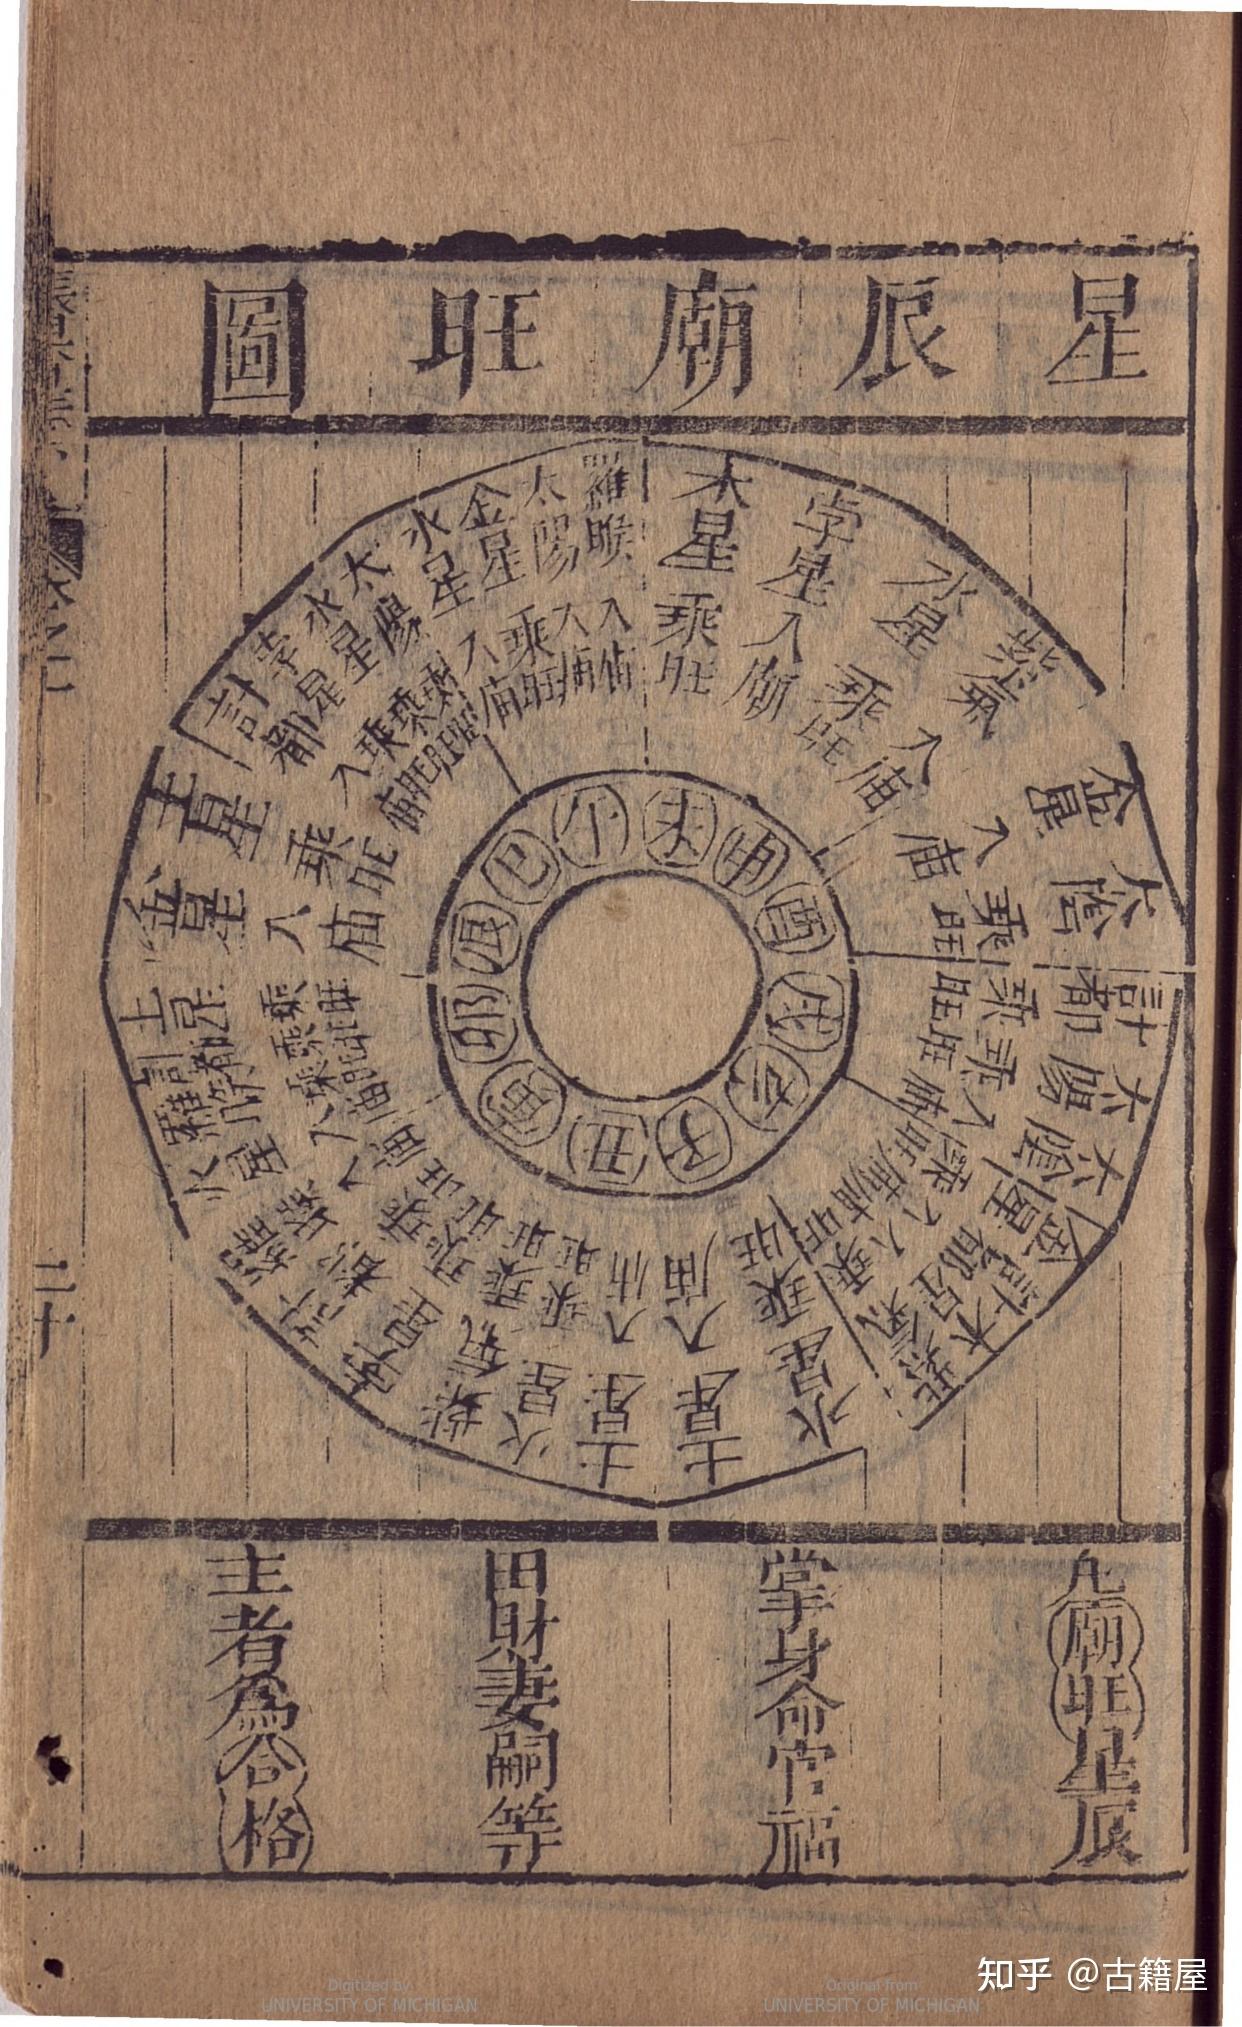 星辰廟旺圖
羅睺入庙
太陽入庙
金星乘旺
水星入庙
太陽
水星乘旺
孛星乘旺
計都入庙
土星乘旺
金星入庙
火星入庙
孛星乘旺
紫氣乘旺
火星乘旺
土星入庙
土星入庙
水星乘旺
紫氣
木星
計都
金星
太陰入庙
太陽乘旺
計都乘旺
太陰乘旺
金星入庙
紫氣入庙
水星乘旺
孛星入廟
木星乘旺
午
未
申
酉
戌
亥
子
丑
寅
卯
辰
巳
凡廟旺星辰
掌身命官福
田財妻嗣等
主者為合格
二十
Digitized by
UNIVERSITY OF MICHIGAN
Original from
UNIVERSITY OF MICHIGAN
知乎 @古籍屋